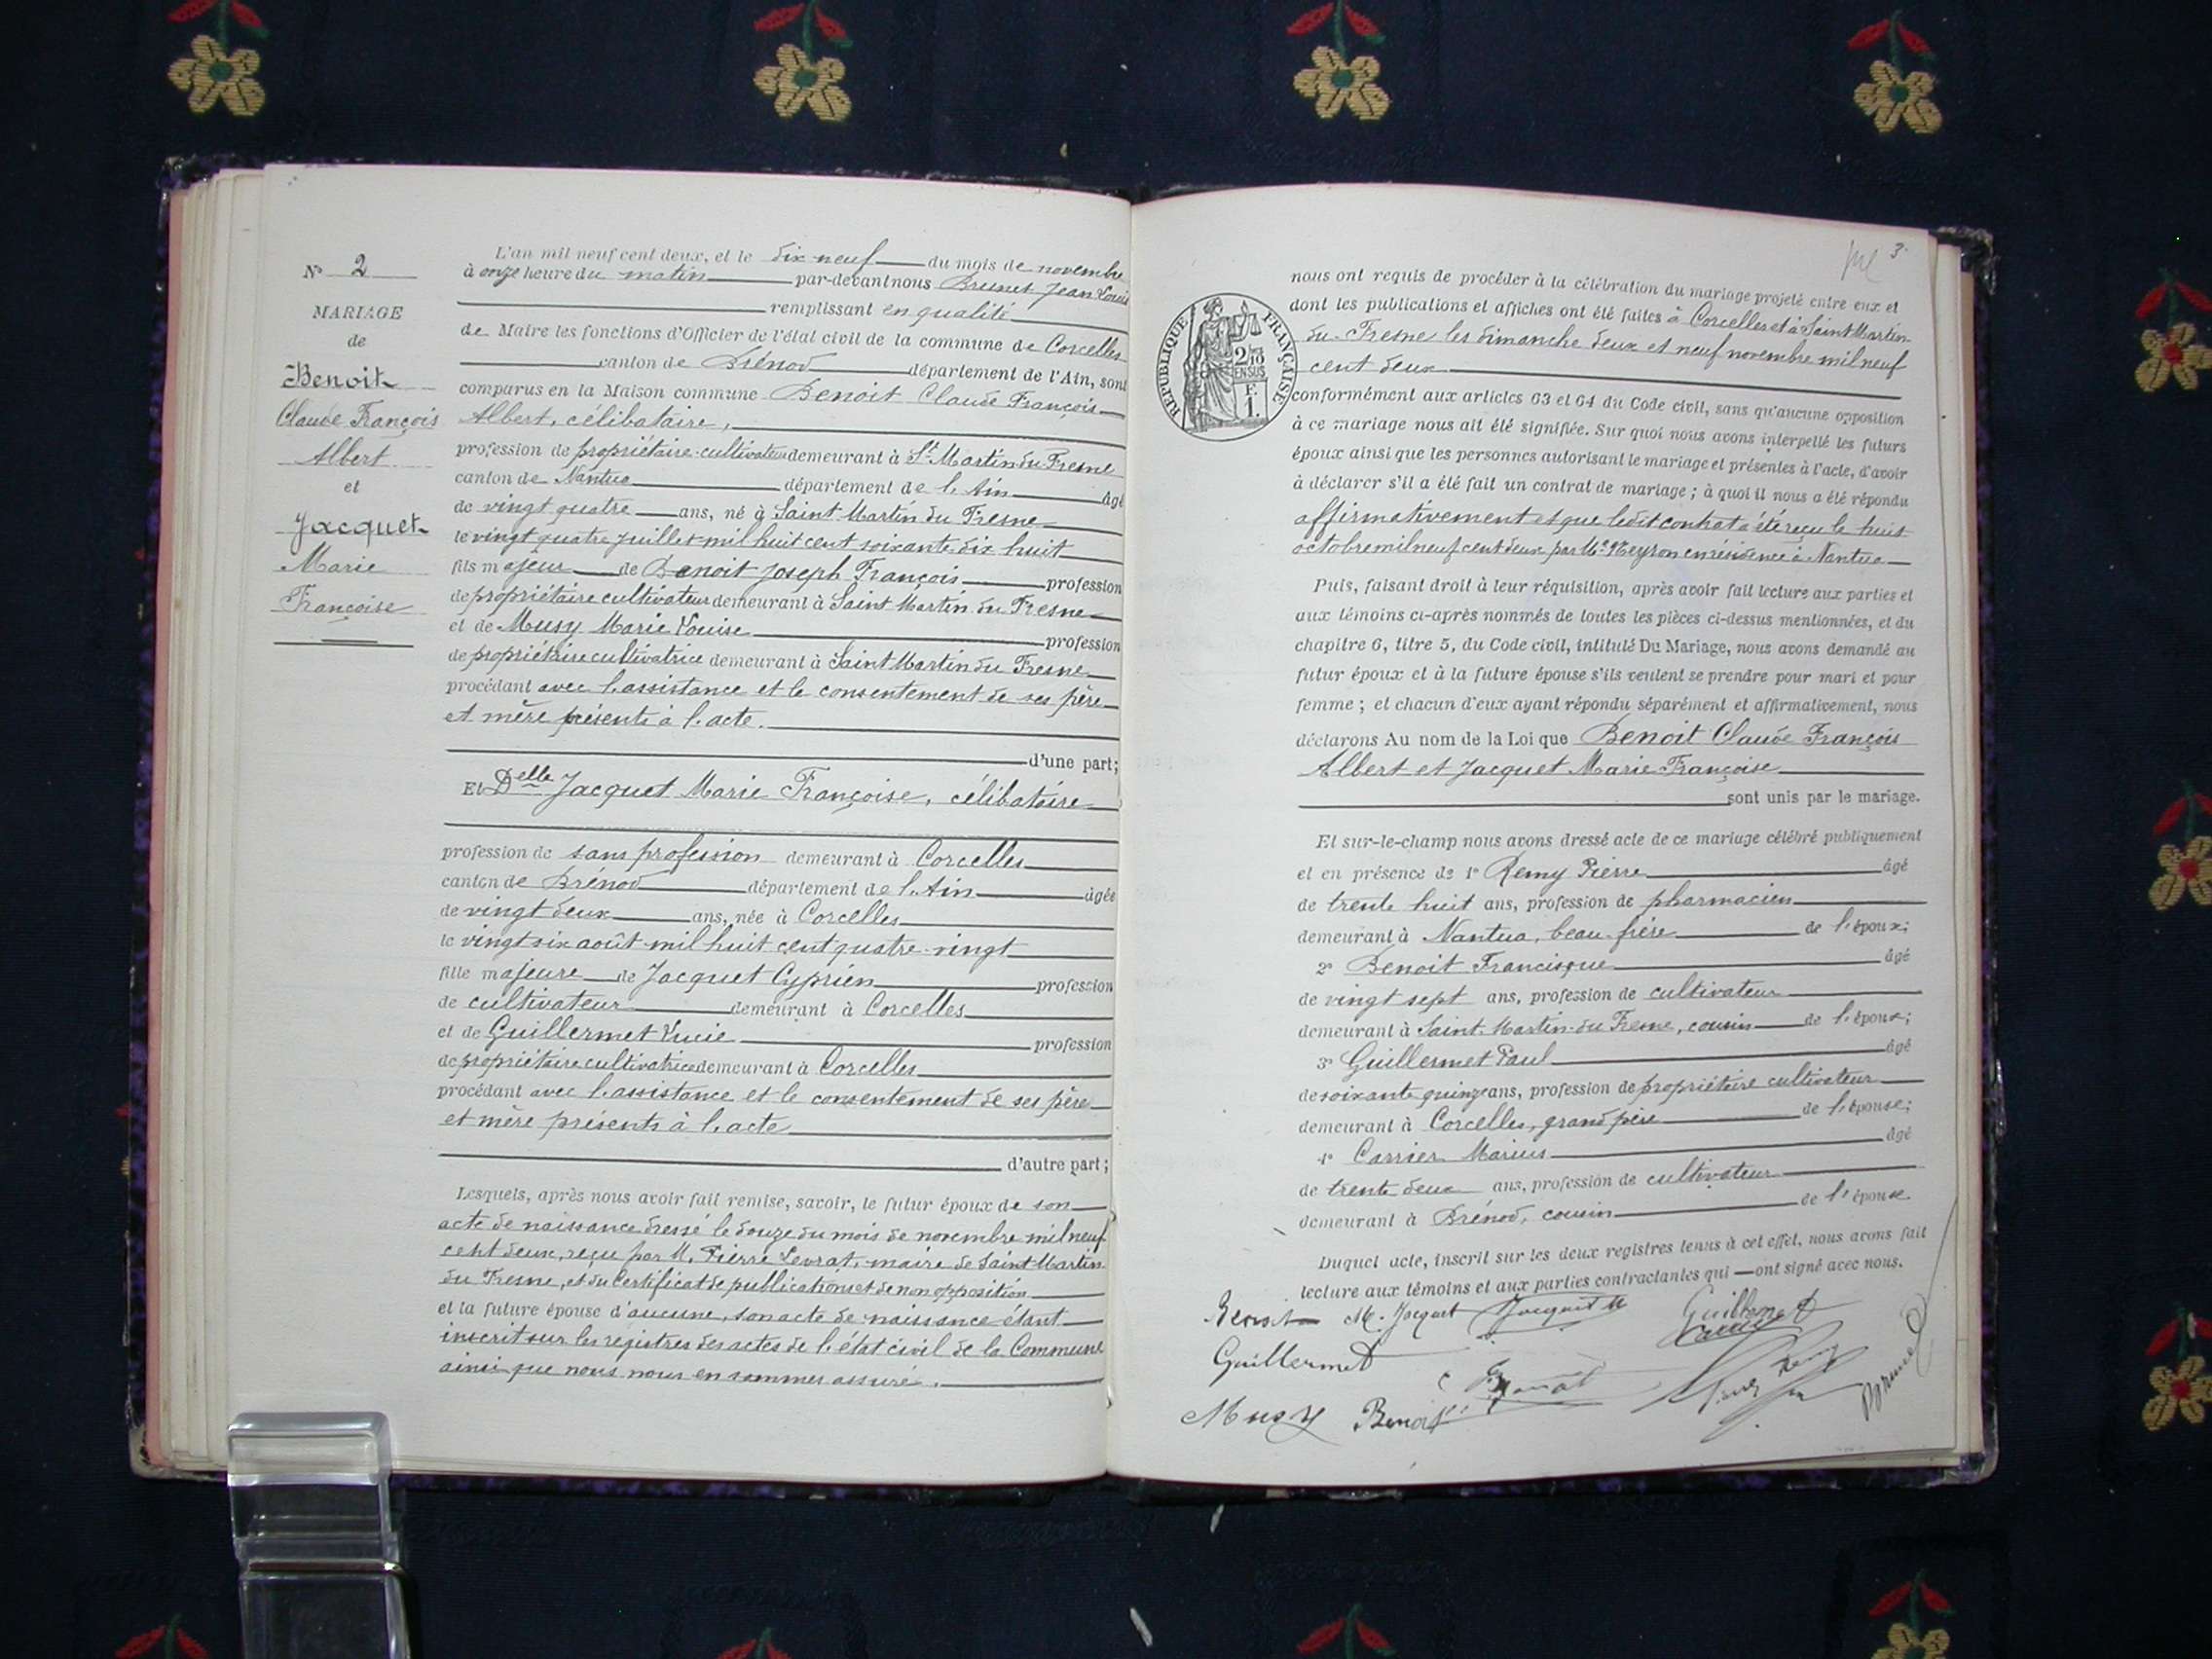 N° 2
MARIAGE
de
Benoit
Claude François
Albert
et
Jacquet
Marie
Françoise
L'an mil neuf cent deux, et le dix neuf du mois de novembre
à onze heure du matin par-devant nous Brunet Jean Louis
remplissant en qualité
de Maire les fonctions d'Officier de l'état civil de la commune de Corcelles
canton de Brénod département de l'Ain, sont
comparus en la Maison commune Benoit Claude François
Albert, célibataire,
profession de propriétaire-cultivateur demeurant à St Martin du Fresne
canton de Nantua département de l'Ain âgé
de vingt quatre ans, né à Saint Martin du Fresne
le vingt quatre juillet mil huit cent soixante dix huit
fils majeur de Benoit Joseph François profession
de propriétaire cultivateur demeurant à Saint Martin du Fresne
et de Musy Marie Louise profession
de propriétaire cultivatrice demeurant à Saint Martin du Fresne
procédant avec l'assistance et le consentement de ses père
et mère présents à l'acte.
d'une part;
Et Delle Jacquet Marie Françoise, célibataire
profession de sans profession demeurant à Corcelles
canton de Brénod département de l'Ain âgée
de vingt deux ans, née à Corcelles
le vingt six août mil huit cent quatre-vingt
fille majeure de Jacquet Cyprien profession
de cultivateur demeurant à Corcelles
et de Guillermet Lucie profession
de propriétaire cultivatrice demeurant à Corcelles
procédant avec l'assistance et le consentement de ses père
et mère présents à l'acte
d'autre part;
Lesquels, après nous avoir fait remise, savoir, le futur époux de son
acte de naissance dressé le douze du mois de novembre mil neuf
cent deux, reçu par M. Pierre Levrat, maire de Saint Martin
du Fresne, et du Certificat de publication et de non opposition
et la future épouse d'aucune, son acte de naissance étant
inscrit sur les registres des actes de l'état civil de la Commune
ainsi que nous nous en sommes assuré.
3
RÉPUBLIQUE FRANÇAISE
2/10
EN SUS
F.
1.
nous ont requis de procéder à la célébration du mariage projeté entre eux et
dont les publications et affiches ont été faites à Corcelles et à Saint Martin
du Fresne les dimanche deux et neuf novembre mil neuf
cent deux
conformément aux articles 63 et 64 du Code civil, sans qu'aucune opposition
à ce mariage nous ait été signifiée. Sur quoi nous avons interpellé les futurs
époux ainsi que les personnes autorisant le mariage et présentes à l'acte, d'avoir
à déclarer s'il a été fait un contrat de mariage; à quoi il nous a été répondu
affirmativement et que ledit contrat a été reçu le huit
octobre mil neuf cent deux par Me en résidence à Nantua
Puis, faisant droit à leur réquisition, après avoir fait lecture aux parties et
aux témoins ci-après nommés de toutes les pièces ci-dessus mentionnées, et du
chapitre 6, titre 5, du Code civil, intitulé Du Mariage, nous avons demandé au
futur époux et à la future épouse s'ils veulent se prendre pour mari et pour
femme; et chacun d'eux ayant répondu séparément et affirmativement, nous
déclarons Au nom de la Loi que Benoit Claude François
Albert et Jacquet Marie Françoise
sont unis par le mariage.
Et sur-le-champ nous avons dressé acte de ce mariage célébré publiquement
et en présence de 1° Remy Pierre âgé
de trente huit ans, profession de pharmacien
demeurant à Nantua, beau-frère de l'époux;
2° Benoit Francisque âgé
de vingt sept ans, profession de cultivateur
demeurant à Saint-Martin-du Fresne, cousin de l'époux;
3° Guillermet Paul âgé
de soixante quinze ans, profession de propriétaire cultivateur
demeurant à Corcelles, grand père de l'épouse;
4° Carrier Marius âgé
de trente deux ans, profession de cultivateur
demeurant à Brénod, cousin de l'épouse
Duquel acte, inscrit sur les deux registres tenus à cet effet, nous avons fait
lecture aux témoins et aux parties contractantes qui ont signé avec nous.
Benoit M. Jacquet Jacquet Guillermet
Guillermet
Musy Benoit Brunet